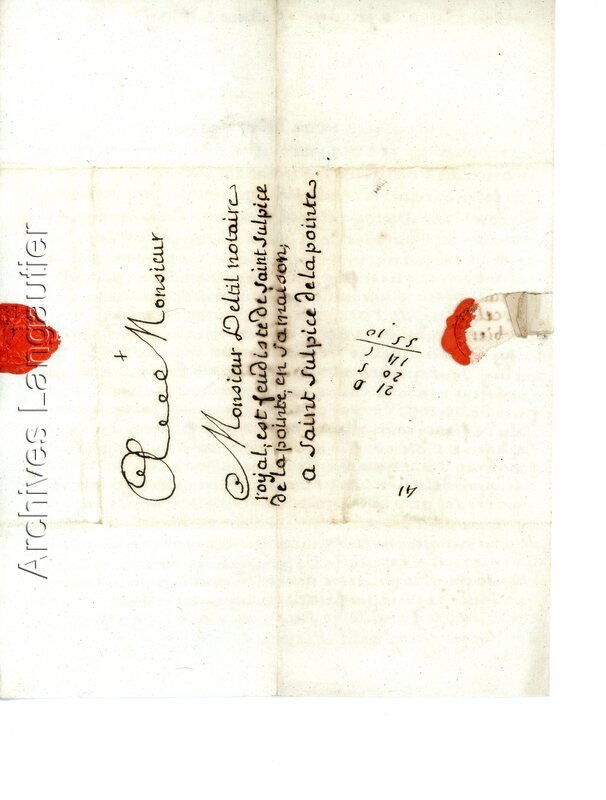 Archives Langautier
+
Monsieur
Monsieur Deltil notaire
royal, est feudiste de saint sulpice
de la pointe, en sa maison,
a saint sulpice de la pointe
21 0
20 5
14 5
55 10